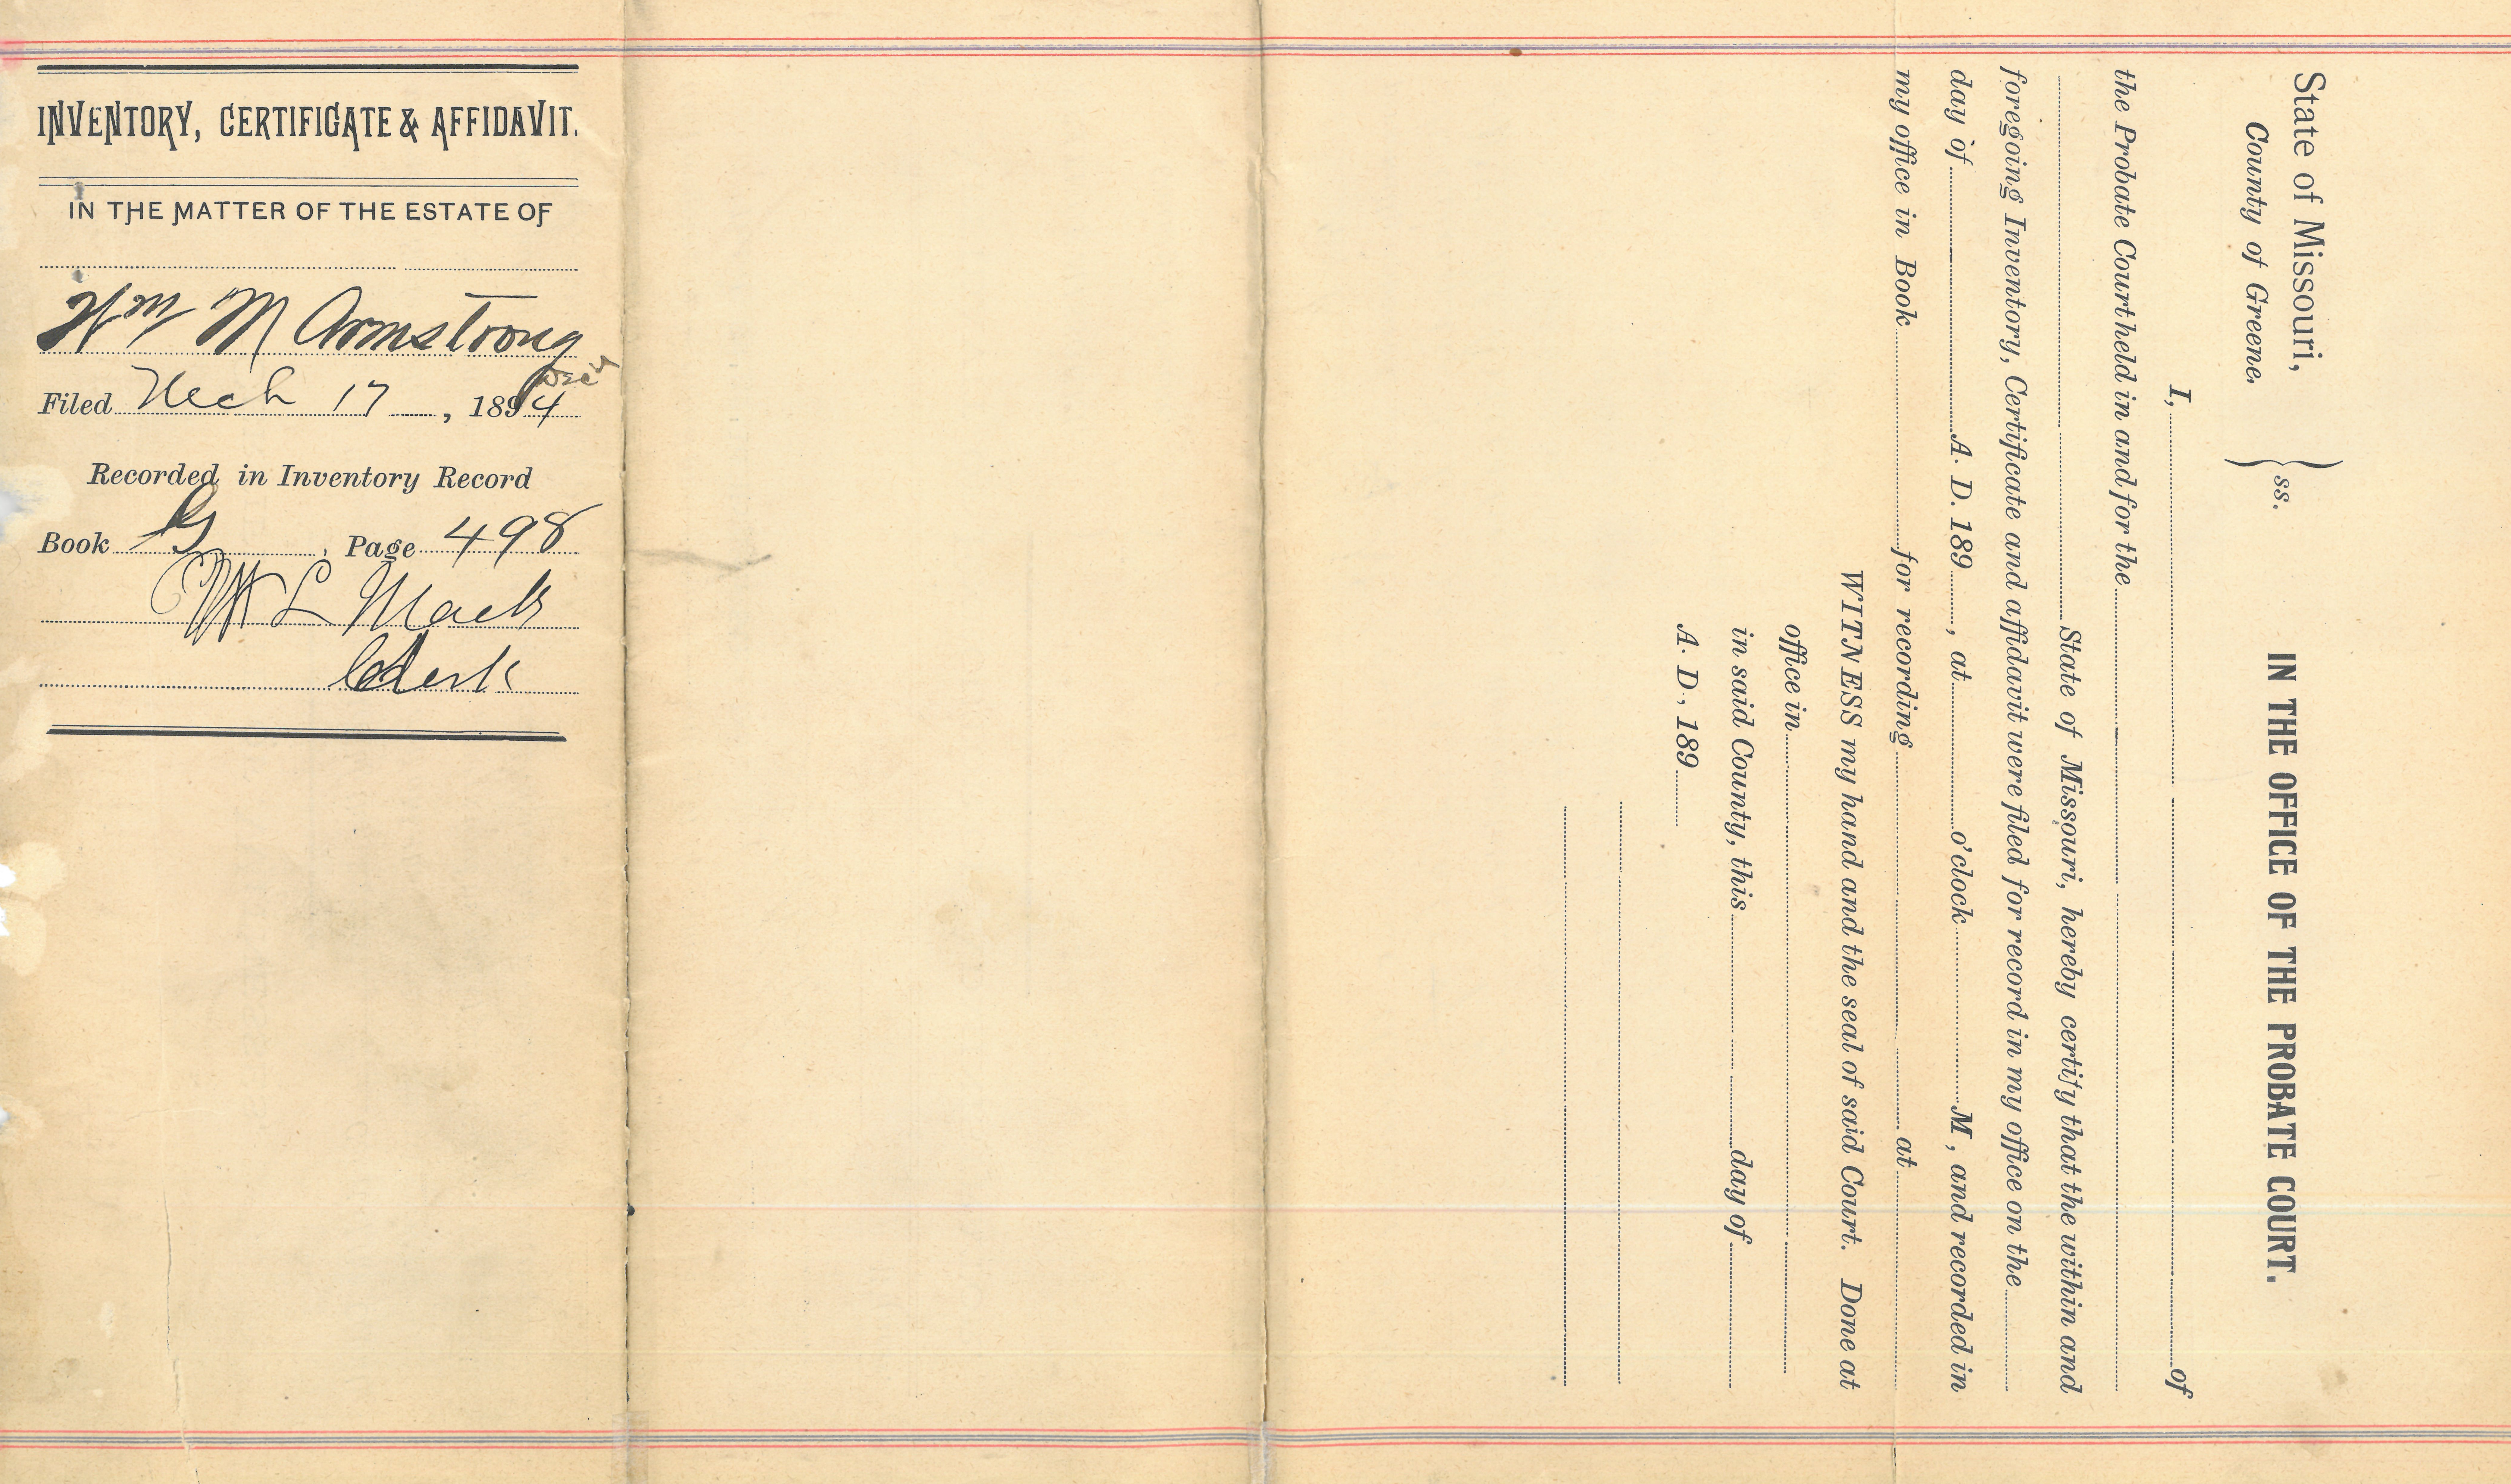 INVENTORY, CERTIFICATE & AFFIDAVIT.
IN THE MATTER OF THE ESTATE OF
Wm M Armstrong
Decd
Filed Mch 17, 1894
Recorded in Inventory Record
Book G, Page 498
W L Mack
Clerk
State of Missouri,
County of Greene.
} ss.
IN THE OFFICE OF THE PROBATE COURT.
I, of
the Probate Court held in and for the
State of Missouri, hereby certify that the within and
foregoing Inventory, Certificate and affidavit were filed for record in my office on the
day of A. D. 189 , at o'clock M, and recorded in
my office in Book for recording at
WITNESS my hand and the seal of said Court. Done at
office in
in said County, this day of
A. D., 189